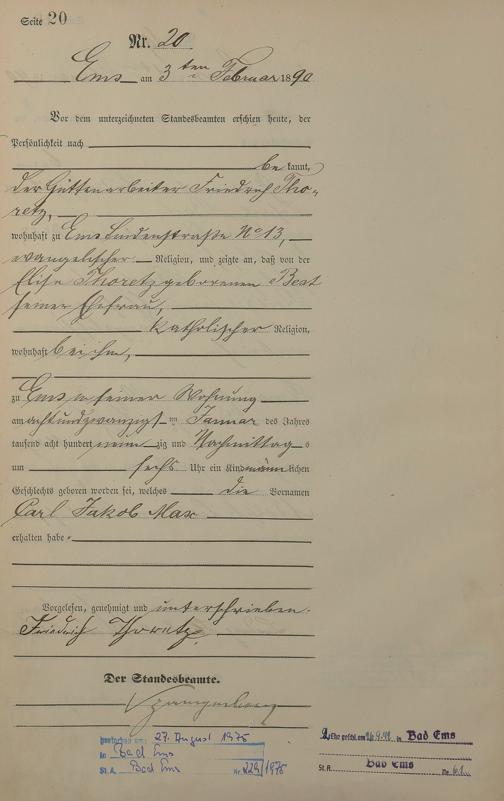 Seite 20
Nr. 20
Ems am 3ten Februar 1890
Vor dem unterzeichneten Standesbeamten erschien heute, der
Persönlichkeit nach
bekannt,
der Hüttenarbeiter Friedrich Tho-
retz,
wohnhaft zu Ems Lindenstraße No 13,
evangelischer Religion, und zeigte an, daß von der
Elise Thoretz geborenen Beat
seiner Ehefrau,
katholischer Religion,
wohnhaft bei ihm,
zu Ems in seiner Wohnung
am achtundzwanzigsten Januar des Jahres
tausend acht hundert neunzig und Nachmittags
um sechs Uhr ein Kind männlichen
Geschlechts geboren worden sei, welches die Vornamen
Carl Jakob Max
erhalten habe.
Vorgelesen, genehmigt und unterschrieben.
Friedrich Thoretz
Der Standesbeamte.
27. August 1975
in Bad Ems
St. A. Bad Ems Nr. 229/1975
2. Ehe geschl. am in Bad Ems
St. A. Bad Ems No